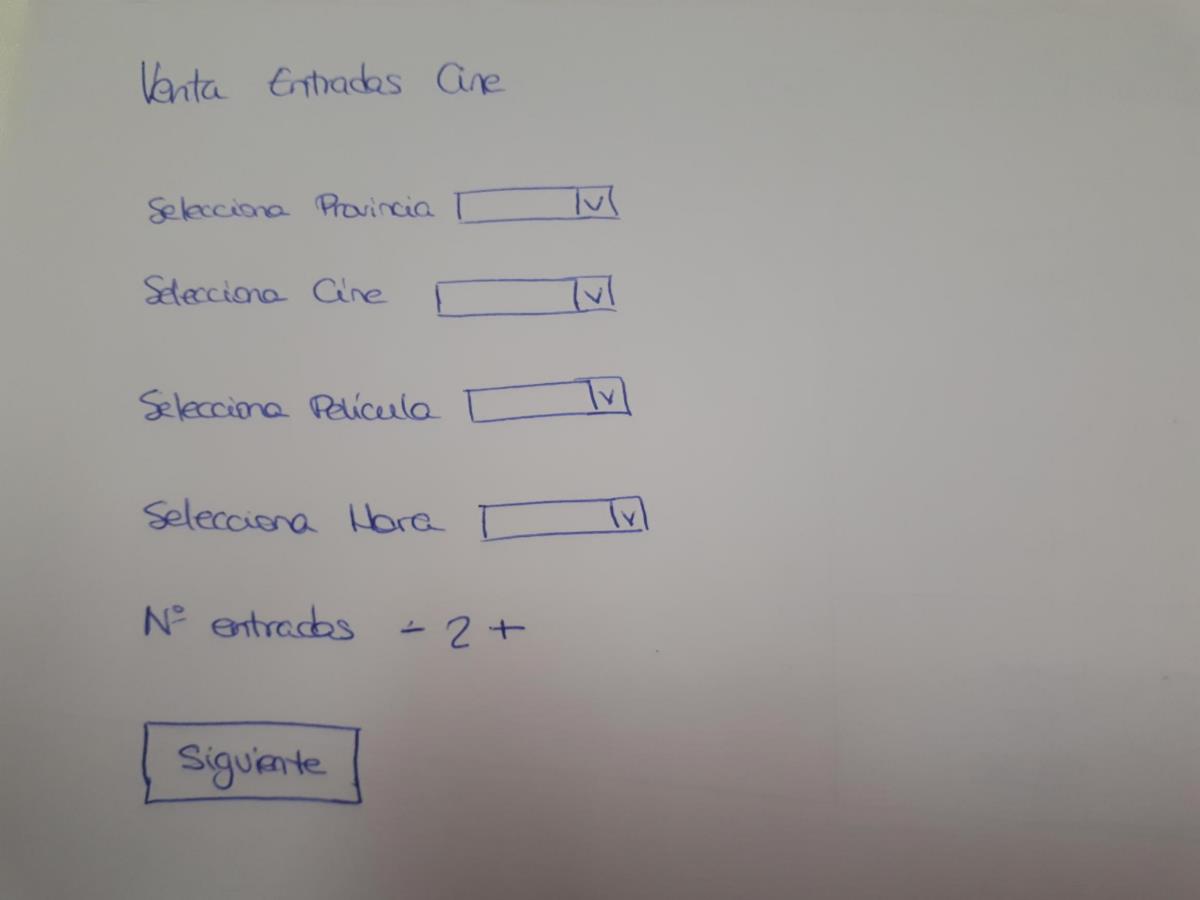 Venta Entradas Cine
Selecciona Provincia
Selecciona Cine
Selecciona Película
Selecciona Hora
Nº entradas - 2 +
Siguiente